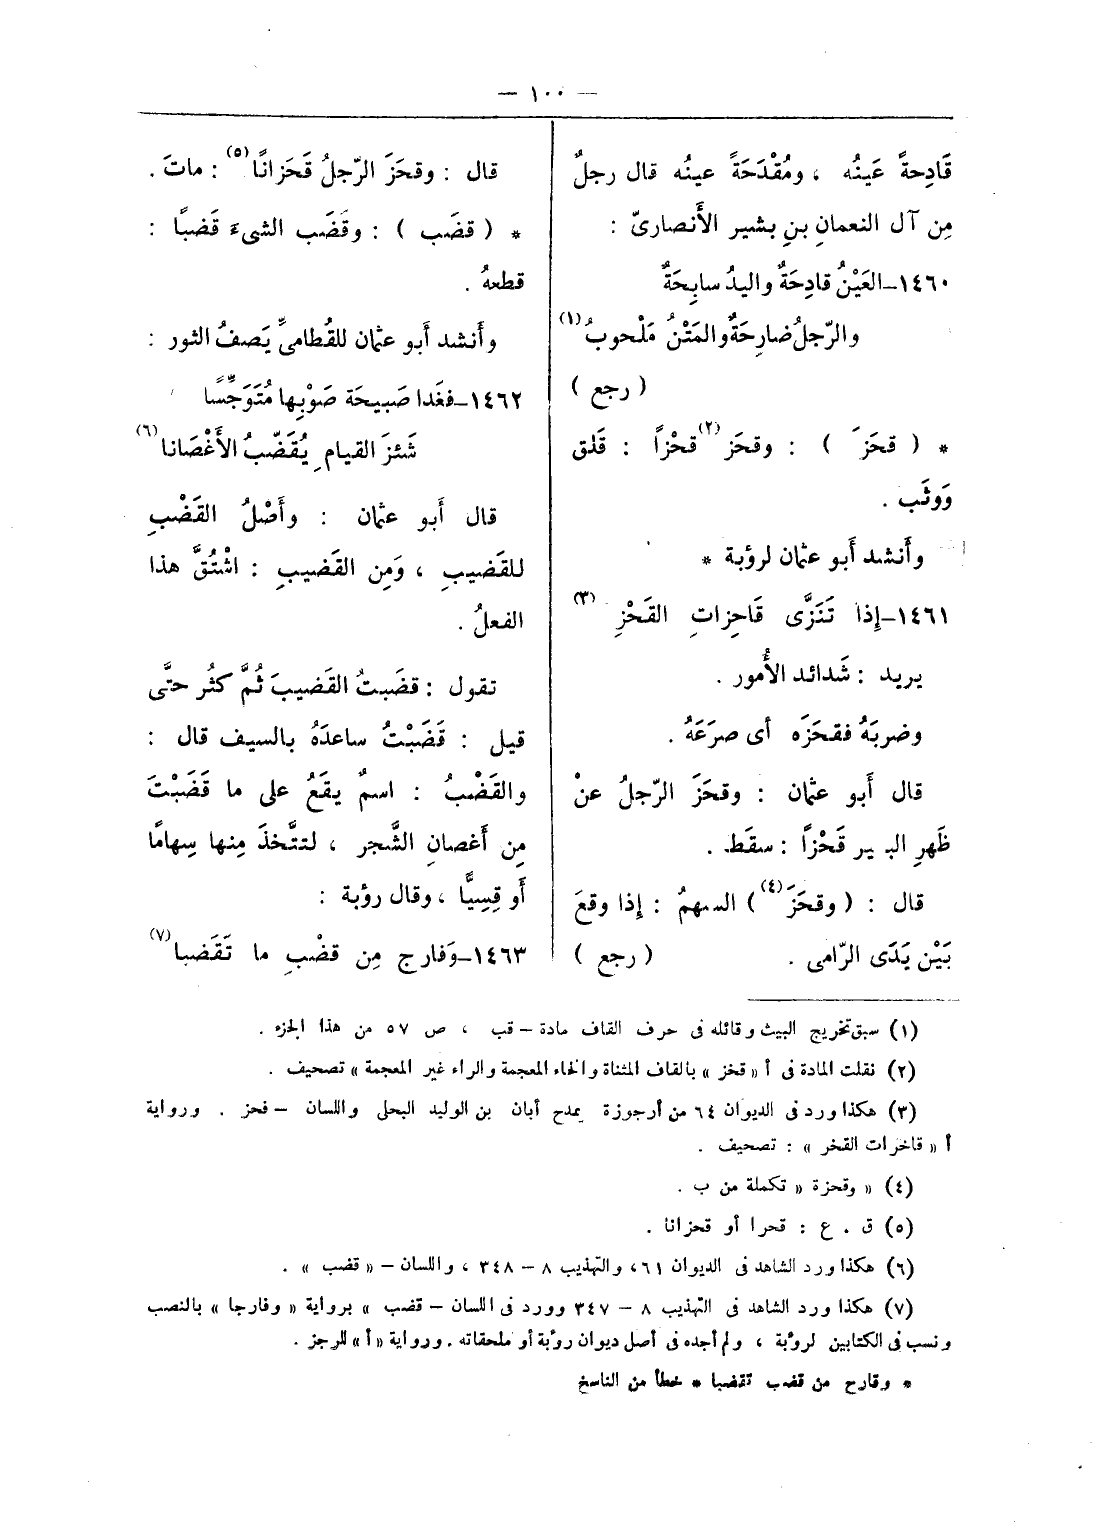 — ١٠٠ —
قَادِحةً عَينُه ، ومُقْدَحَةً عينُه قال رجلٌ
مِن آل النعمانِ بنِ بشيرِ الأَنصارىّ :
١٤٦٠–العَيْنُ قادِحَةٌ واليدُ سابِحَةٌ
والرّجلُ ضارِحَةٌ والمَتْنُ مَلْحوبُ (١)
( رجع )
* ( قحَزَ ) : وقحَز (٢) قحْزاً : قَلق
وَوثَب .
وأَنشد أَبو عثمان لرؤبة *
١٤٦١–إِذا تَنَزَّى قَاحِزاتِ القَحْزِ (٣)
يريد : شَدائد الأُمور .
وضربَهُ فقحَزَه أى صرَعَهُ .
قال أَبو عثمان : وقحَزَ الرّجلُ عنْ
ظَهرِ البـيـر قَحْزاً : سقَط .
قال : ( وقحَزَ (٤) ) السهمُ : إِذا وقعَ
بَيْن يَدَى الرّامى . ( رجع )
قال : وقحَزَ الرّجلُ قَحَزانًا (٥) : ماتَ .
* ( قضَب ) : وقَضَب الشىءَ قَضبًا :
قطعهُ .
وأَنشد أَبو عثمان للقُطامىِّ يَصفُ الثور :
١٤٦٢–فغَدا صَبيحَة صَوْبِها مُتَوَجِّسًا
شَئزَ القيامِ يُقَضّبُ الأَغْصَانا (٦)
قال أَبو عثمان : وأَصْلُ القَضْبِ
للقَضيبِ ، وَمِن القَضيبِ : اشْتُقَّ هذا
الفعلُ .
تقول : قضَبتُ القَضيبَ ثُمَّ كثُر حتَّى
قيل : قَضَبْتُ ساعدَهُ بالسيف قال :
والقَضْبُ : اسمٌ يقَعُ على ما قَضَبْتَ
مِن أَغصانِ الشَّجر ، لتتَّخذَ مِنها سِهامًا
أَو قِسِيًّا ، وقال رؤبة :
١٤٦٣–وَفارج مِن قضْبِ ما تَقَضبا (٧)
(١) سبق تخريج البيث وقائله فى حرف القاف مادة – قب ، ص ٥٧ من هذا الجزء .
(٢) نقلت المادة فى أ « قخز » بالقاف المثناة والخاء المعجمة والراء غير المعجمة » تصحيف .
(٣) هكذا ورد فى الديوان ٦٤ من أرجوزة يمدح أبان بن الوليد البجلى واللسان – قحز . ورواية
أ « قاخرات القخر » : تصحيف .
(٤) « وقحزة « تكملة من ب .
(٥) ق . ع : قحرا أو قحزانا .
(٦) هكذا ورد الشاهد فى الديوان ٦١، والتهذيب ٨ – ٣٤٨ ، واللسان – « قضب » .
(٧) هكذا ورد الشاهد فى التهذيب ٨ – ٣٤٧ وورد فى اللسان – قضب » برواية « وفارجا » بالنصب
ونسب فى الكتابين لرؤبة ، ولم أجده فى أصل ديوان رؤبة أو ملحقاته . ورواية «أ » للرجز .
* وقارح من قضب تقضبا * خطأ من الناسخ